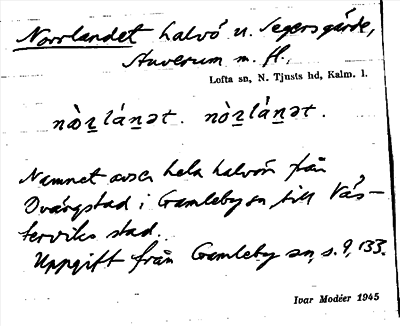 Norrlandet halvö u. Segersgärde,
Stuverum m. fl.
Lofta sn, N. Tjusts hd, Kalm. l.
nòṟlánət. nòṟlánət.
Namnet avser hela halvön från
Dvärgstad i Gamleby sn till Väs-
terviks stad.
Uppgift från Gamleby sn, s. 9, 133.
Ivar Modéer 1945